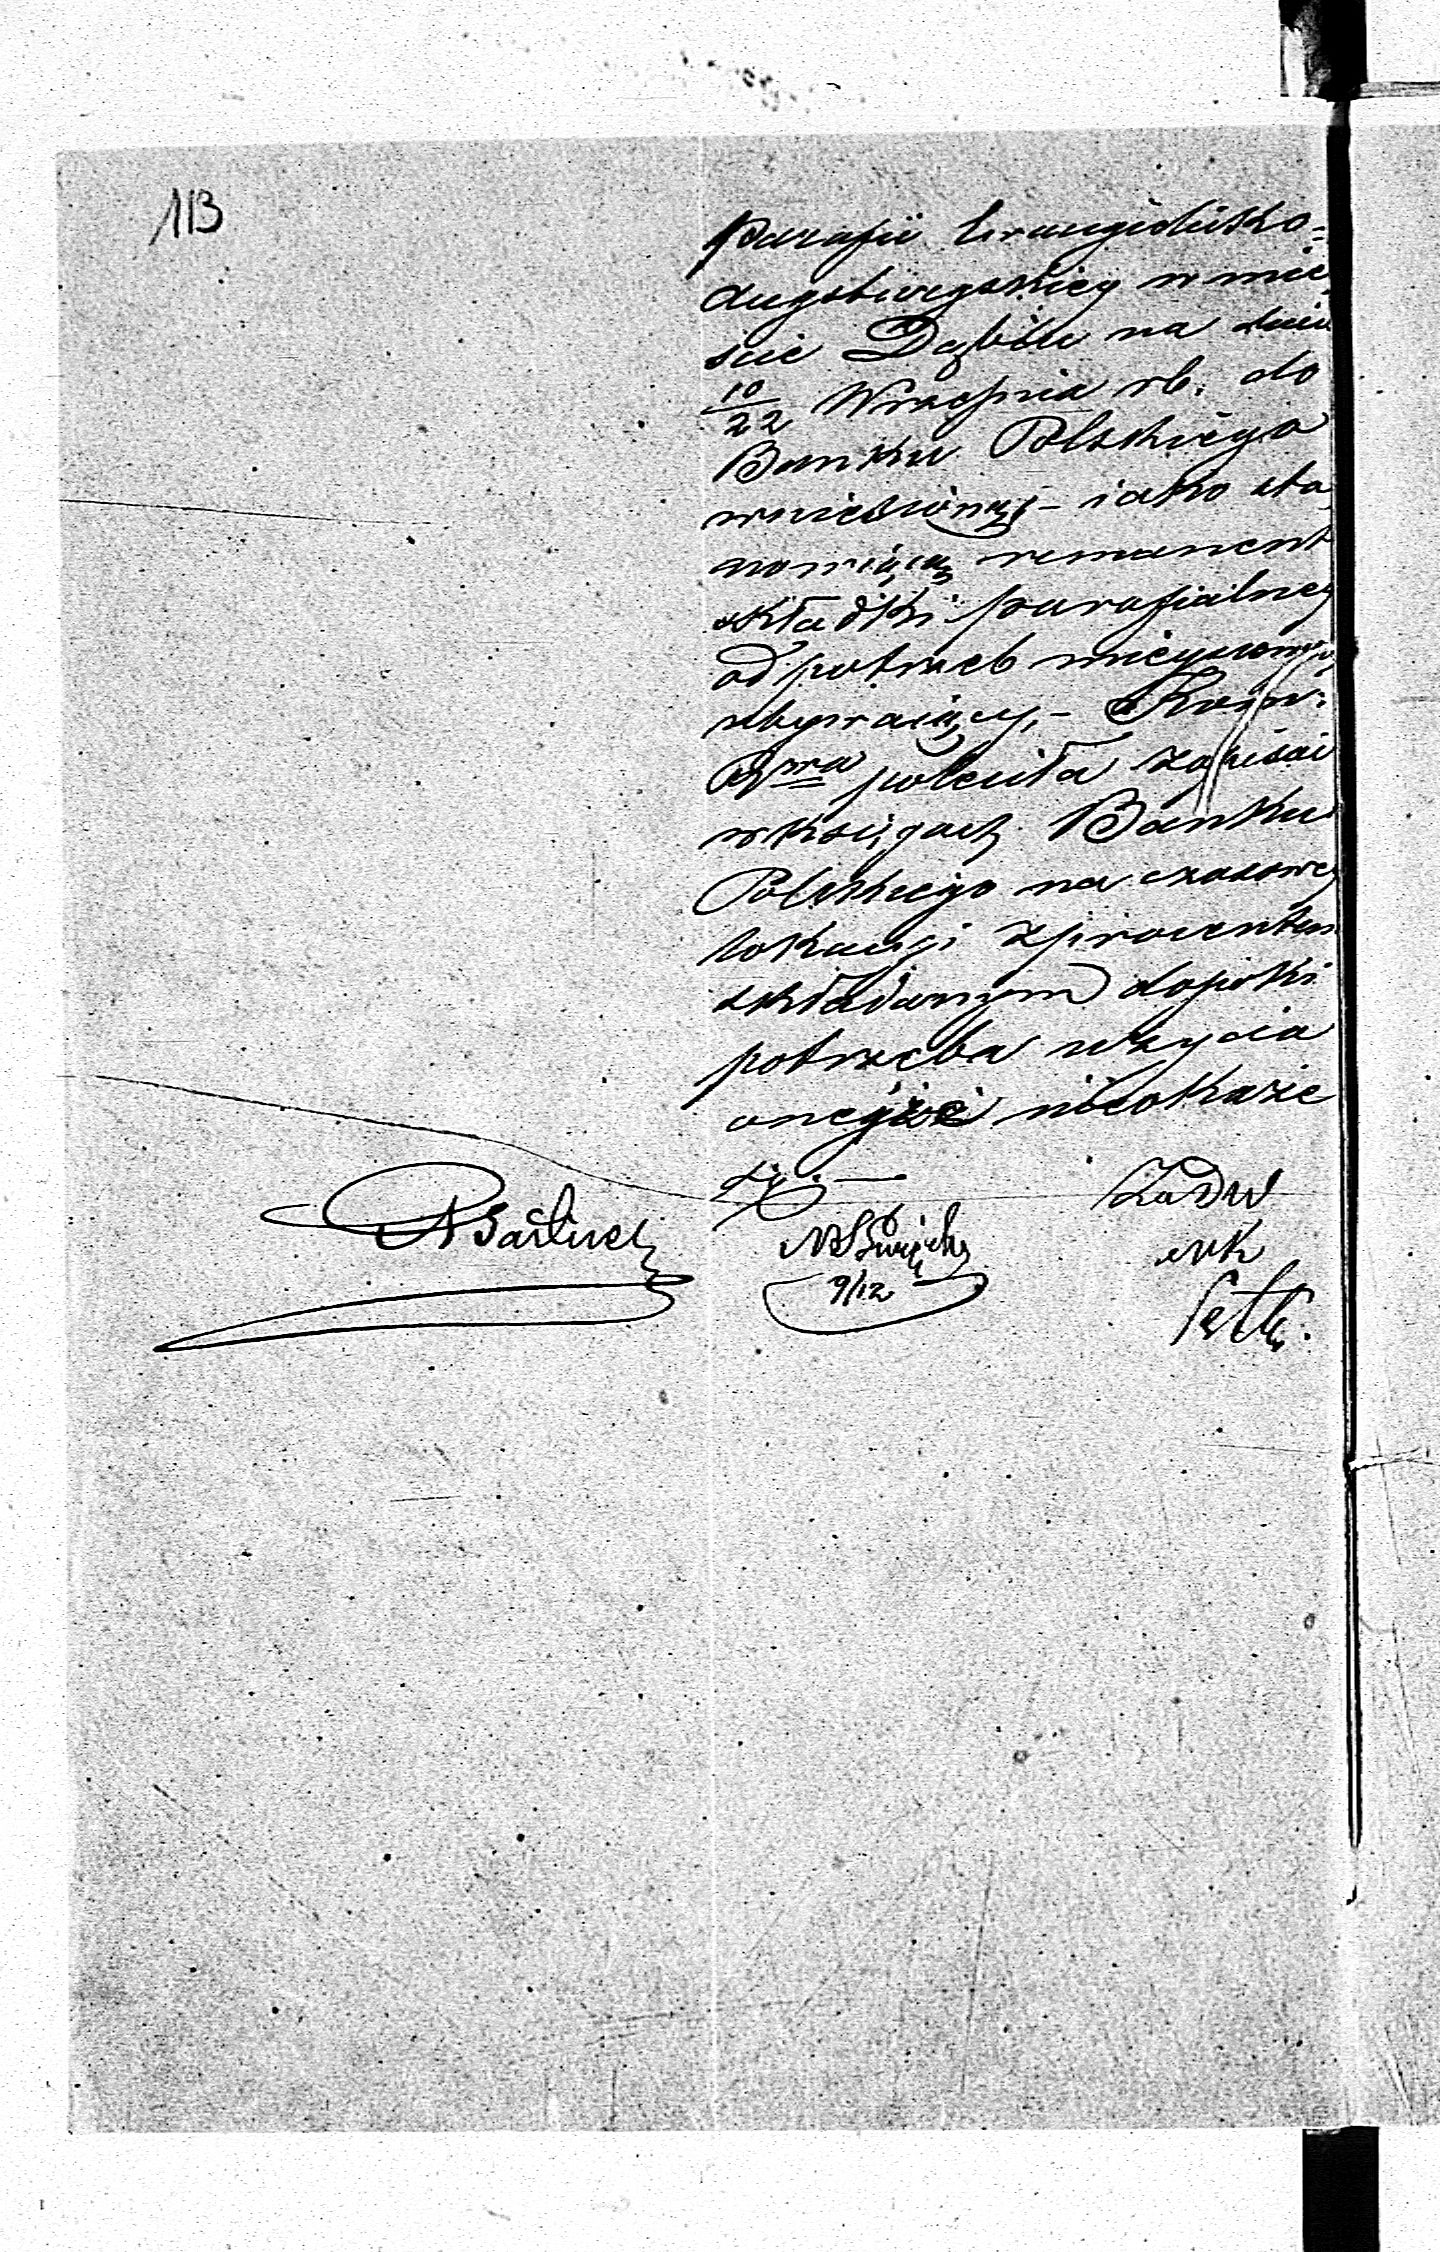 113
Parafii Ewangelicko=
Augsburgskiey w mie
scie Dąbiu na dniu
10/22 Września rb. do
Banku Polskiego
wniesioną – iako sta
nowiącą remanent
składki parafialney
od potrzeb mieyscowych
zbywaiący, – Kom:
Rz̲wa poleciła zapisać
w księgach Banku
Polskiego na czasowey
lokacyi z procentem
składanym dopóki
potrzeba użycia
oneyże nieokaże
się. –
9/12